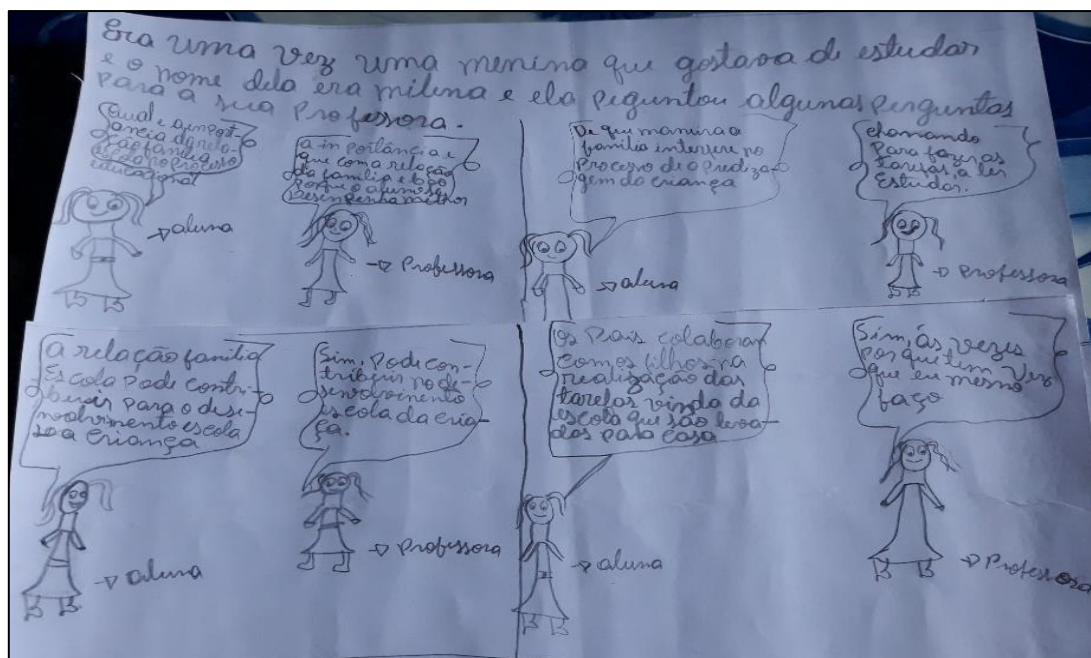 Era uma vez uma menina que gostava de estudar
e o nome dela era milena e ela peguntou algunas perguntas
para a sua professora.
Qual e a import-
tancia da rela-
ção família
no processo
educacional
a in portância e
que com a relação
da família e boa
porque o aluno se
desempenha milhor
De que maneira a
família interfere no
Processo de a prediza-
gem da criança
chamando
Para fazer as
tarefas, a ler
Estudar.
→ aluna
→ Professora
→ aluna
→ Professora
a relação família
Escola Pode contri-
buir Para o dese-
nvolvimento escola
a criança
Sim, Pode con-
tribuir no de-
senvolvimento
escola da cria-
ça.
os Pais colaboram
com os filhos na
realização das
tarefas vinda da
escola que são leva-
das para casa
Sim, ás vezes
por que tem vez
que eu mesmo
faço
→ aluna
→ Professora
→ aluna
→ Professora